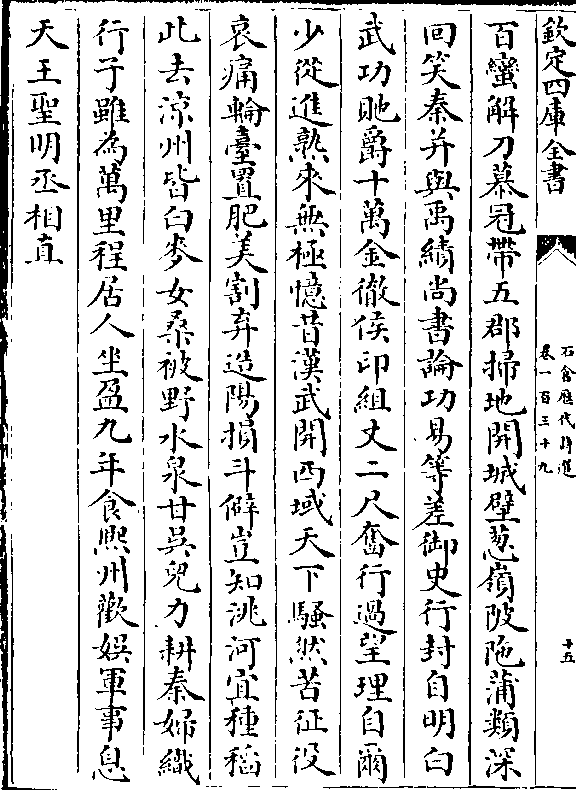 欽定四庫全書
石倉歷代詩選
卷一百三十九
十五
百蠻解刀慕冠帶五郡掃地開城壁葱嶺陂陁蒲類深
回笑秦并與禹績尚書論功易等差御史行封自明白
武功貤爵十萬金徹侯印組丈二尺奮行過望理自爾
少從進熟來無極憶昔漢武開西域天下騷然苦征役
哀痛輪臺置肥美割弃造陽損斗僻豈知洮河宜種稻
此去涼州皆白麥女桑被野水泉甘吳兒力耕秦婦織
行子雖為萬里程居人坐盈九年食熙州歡娛軍事息
天王聖明丞相直